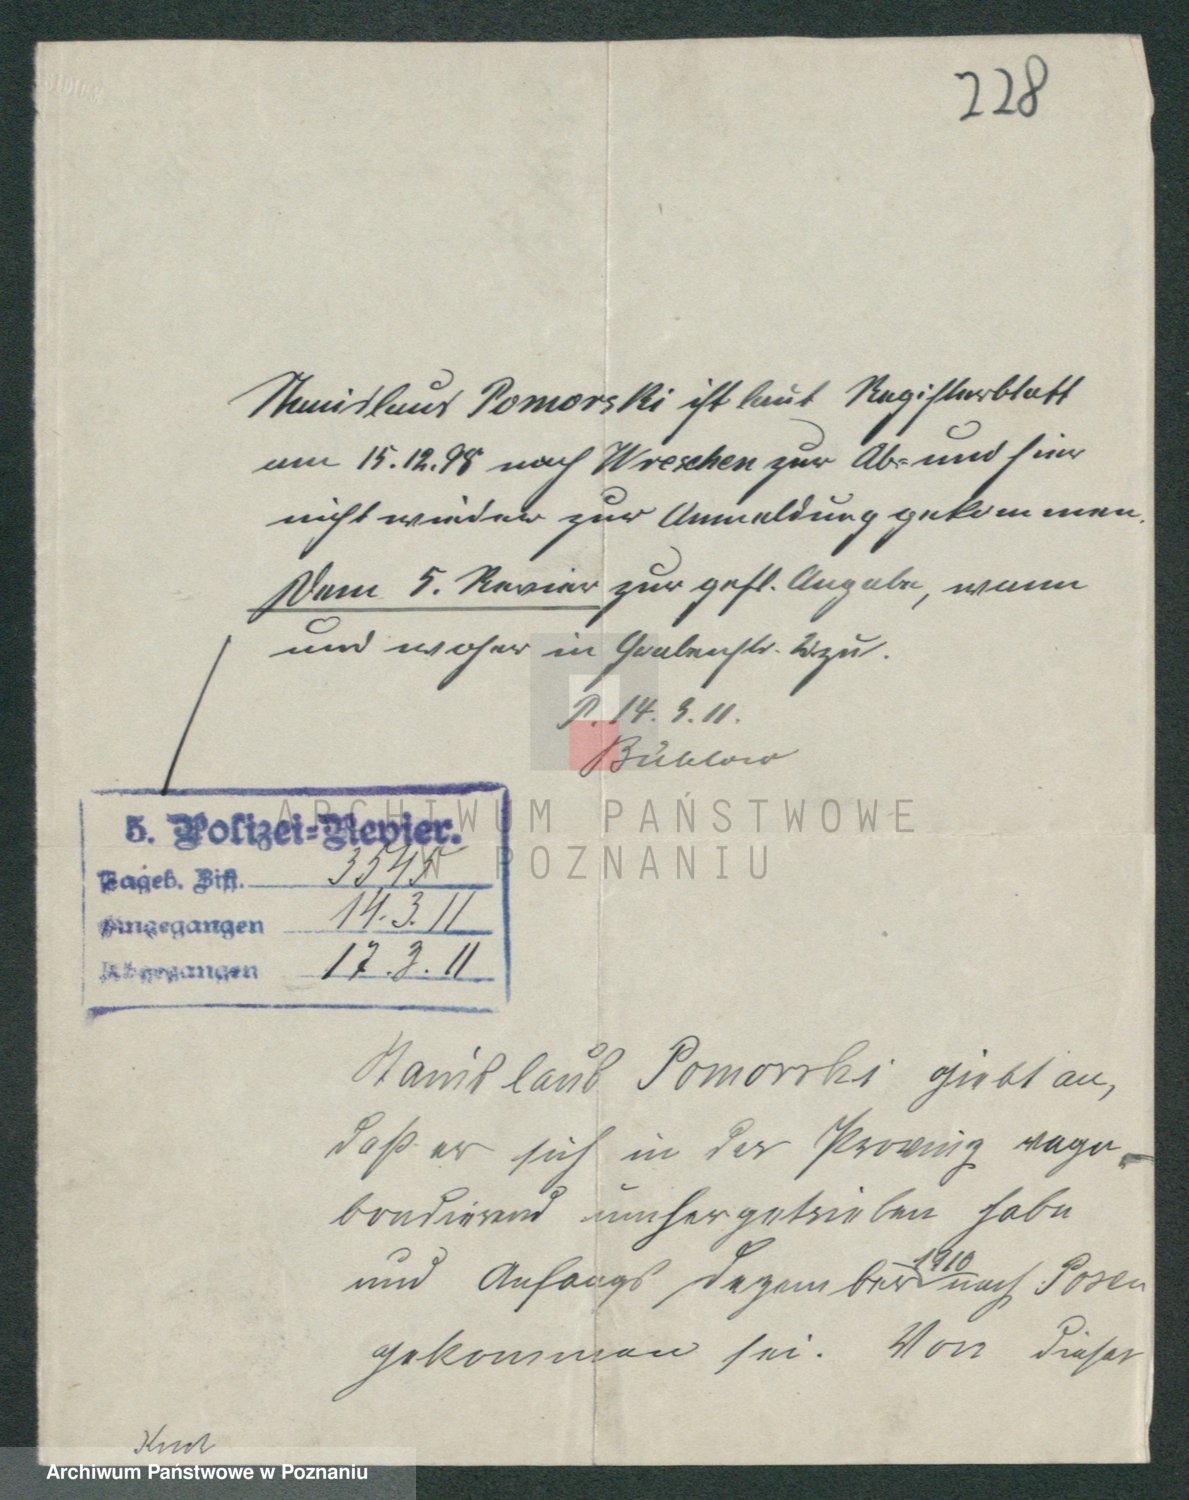 228
Stanislaus Pomorski ist laut Registerblatt
am 15.12.98 nach Wreschen zur Ab- und hier
nicht wieder zur Anmeldung gekommen.
Dem 5. Revier zur gefl. Angabe, wann
und woher in Grabenstr. zu.
P. 14.3.11.
ARCHIWUM PAŃSTWOWE
W POZNANIU
5. Polizei-Revier.
Tageb. 3545
Eingegangen 14.3.11
Abgegangen 17.3.11
Stanislaus Pomorski giebt an,
daß er sich in der Provinz vaga-
bondierend umhergetrieben habe
und Anfangs Dezember 1910 nach Posen
gekommen sei. Von dieser
Archiwum Państwowe w Poznaniu